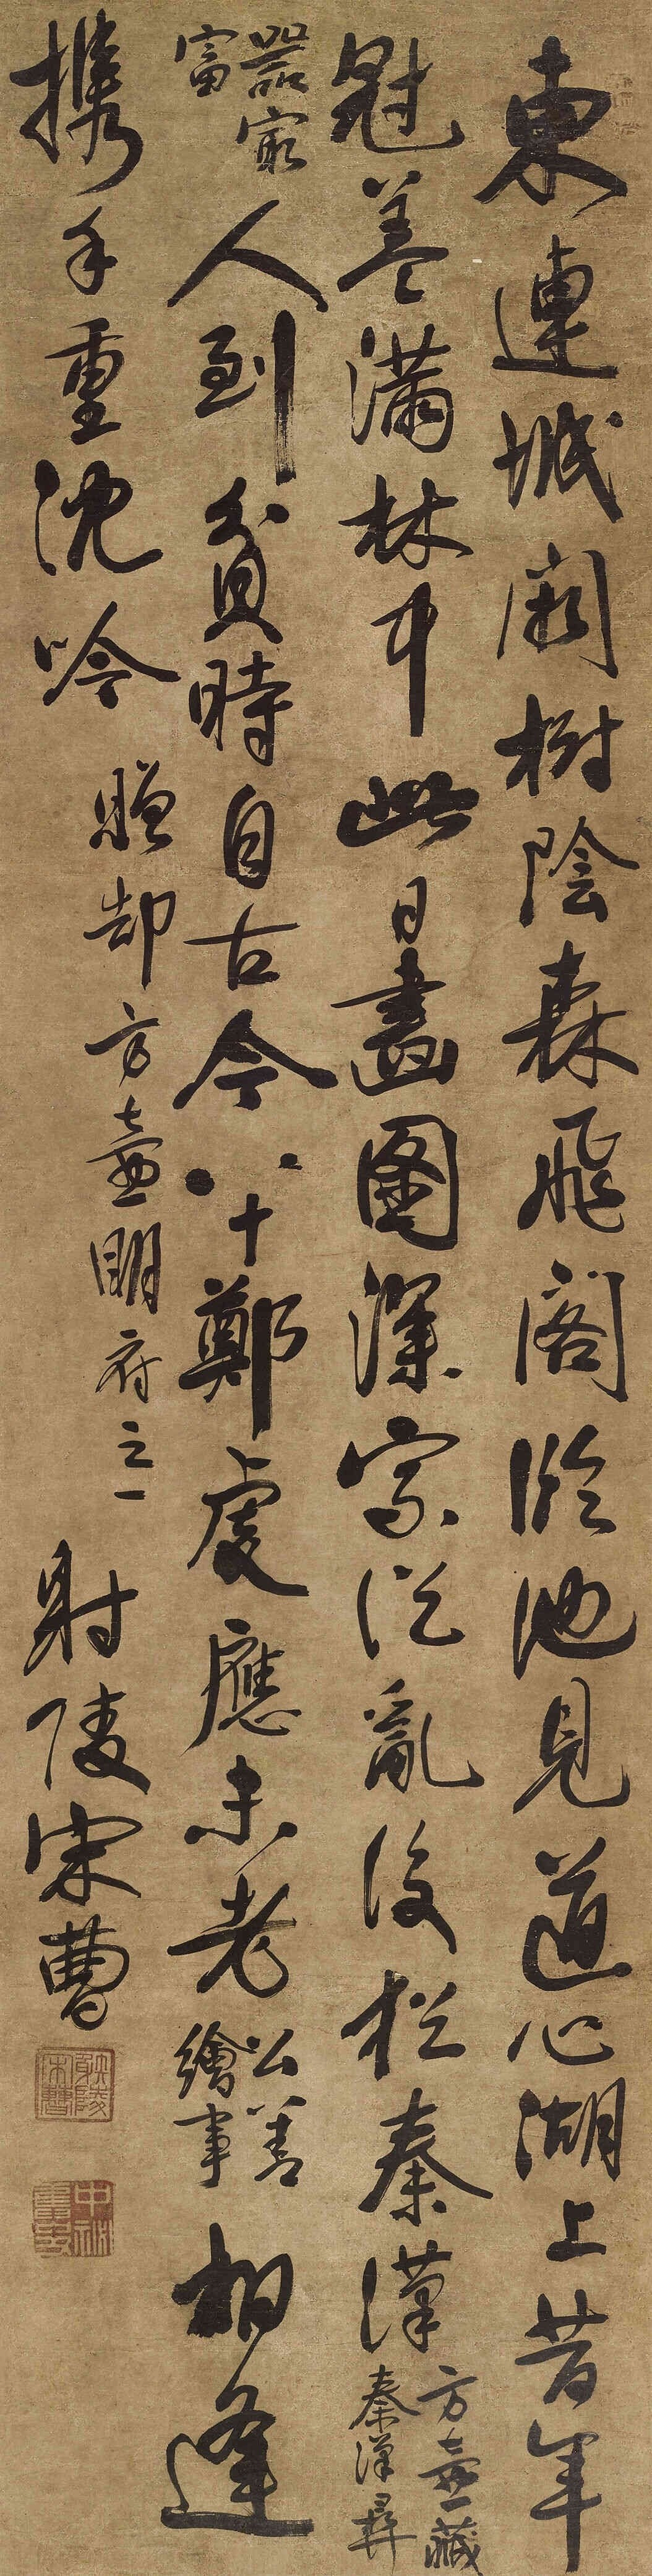 東連城闕樹陰森飛閣臨池見道心湖上昔年
冠蓋滿林中此日畫圖深家從亂後猶秦漢方壺藏秦漢彝
器最富人到貧時自古今八十鄭虔應未老公善繪事相逢
攜手重沈吟
贈却方壺明府之一
射陵宋曹
射陵宋曹
中祕書史